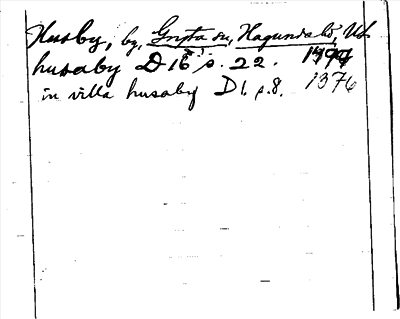 Husby, by, Gryta sn, Hagunda hd, Ul.
husaby D 16 s. 22. 1344
in villa husaby D 1. s. 8. 1376